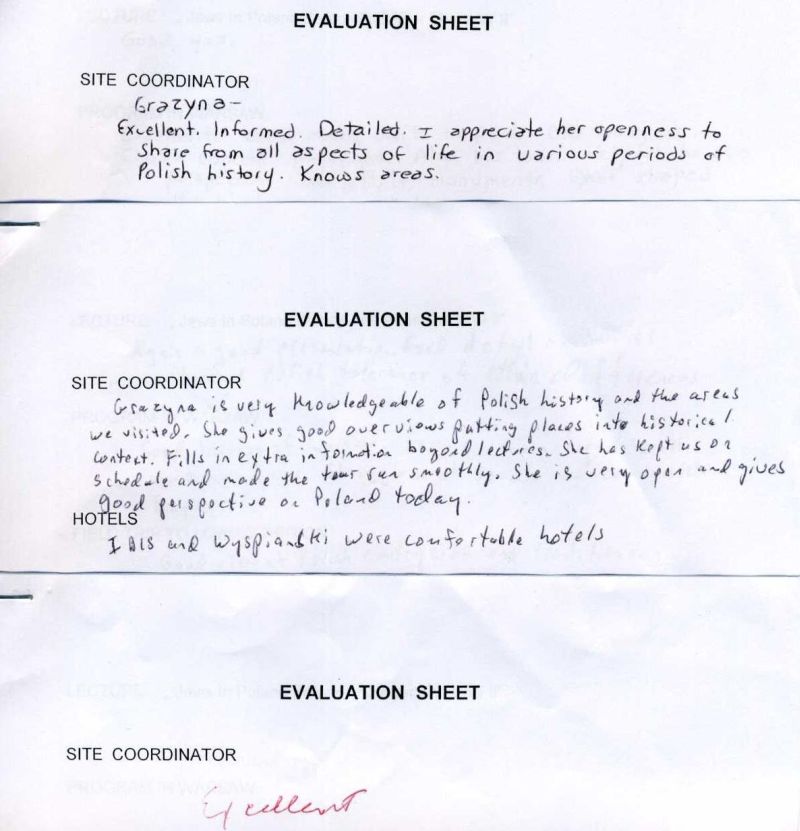 EVALUATION SHEET
SITE COORDINATOR
Grazyna-
Excellent. Informed. Detailed. I appreciate her openness to
share from all aspects of life in various periods of
Polish history. Knows areas.
EVALUATION SHEET
SITE COORDINATOR
Grazyna is very knowledgeable of Polish history and the areas
we visited. She gives good overviews putting places into historical
context. Fills in extra information beyond lectures. She has kept us on
schedule and made the tour run smoothly. She is very open and gives
good perspective on Poland today.
HOTELS
IBIS and Wyspianski were comfortable hotels
EVALUATION SHEET
SITE COORDINATOR
Excellent